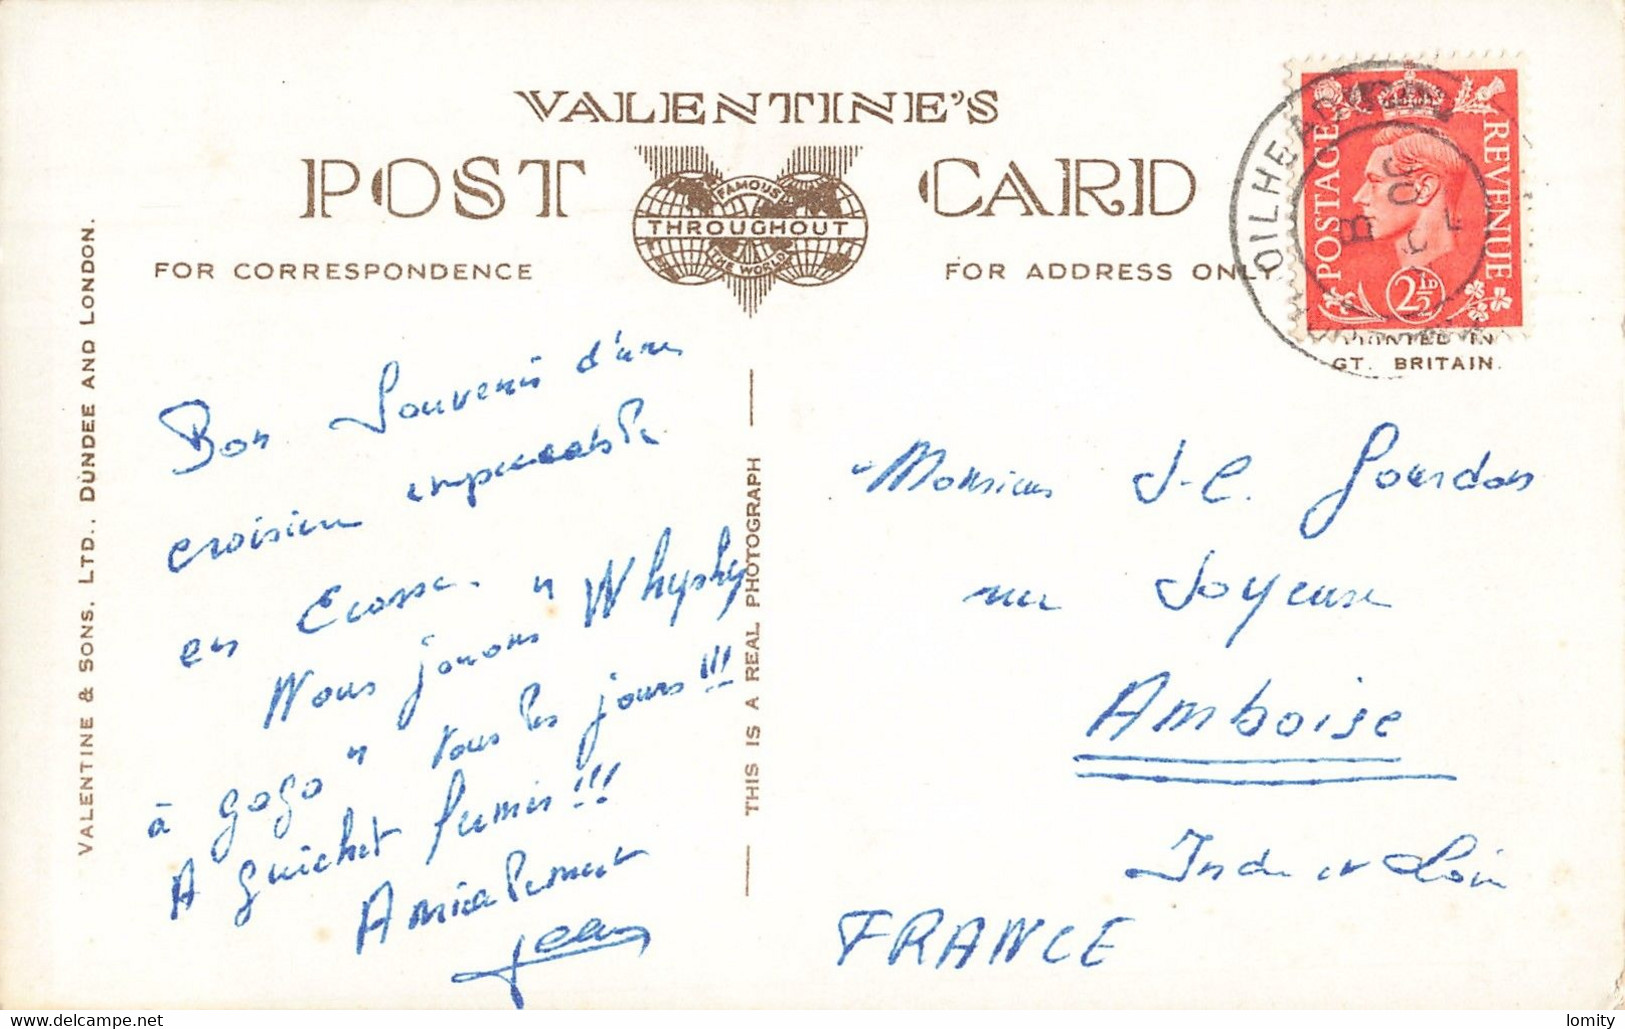 VALENTINE'S
POST CARD
FAMOUS
THROUGHOUT
THE WORLD
FOR CORRESPONDENCE
FOR ADDRESS ONLY
POSTAGE
REVENUE
2½D
B
30
PRINTED IN
GT. BRITAIN.
VALENTINE & SONS, LTD., DUNDEE AND LONDON.
THIS IS A REAL PHOTOGRAPH
Bon Souvenir d'une
croisière impeccable
en Ecosse.
Nous jouons "Whysky
à gogo" tous les jours!!!
A guichet fermés!!!
Amicalement
Jean
Monsieur J-C. Gourdon
rue Joyeuse
Amboise
Indre et Loire
FRANCE
www.delcampe.net
lomity